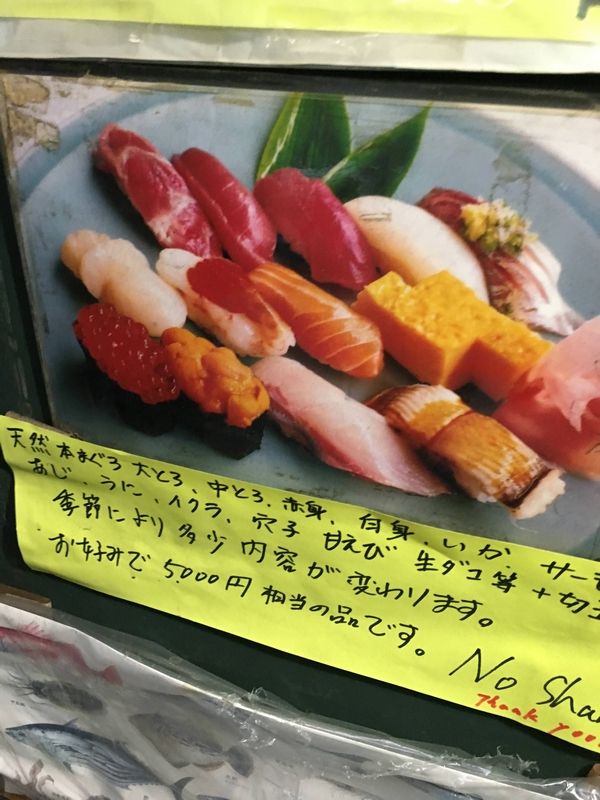 天然本まぐろ大とろ、中とろ、赤身、白身、いか、サー
あじ、うに、イクラ、穴子 甘えび 生ダコ等＋切
季節により多少内容が変わります。
お好みで5000円相当の品です。
No Sha
Thank you